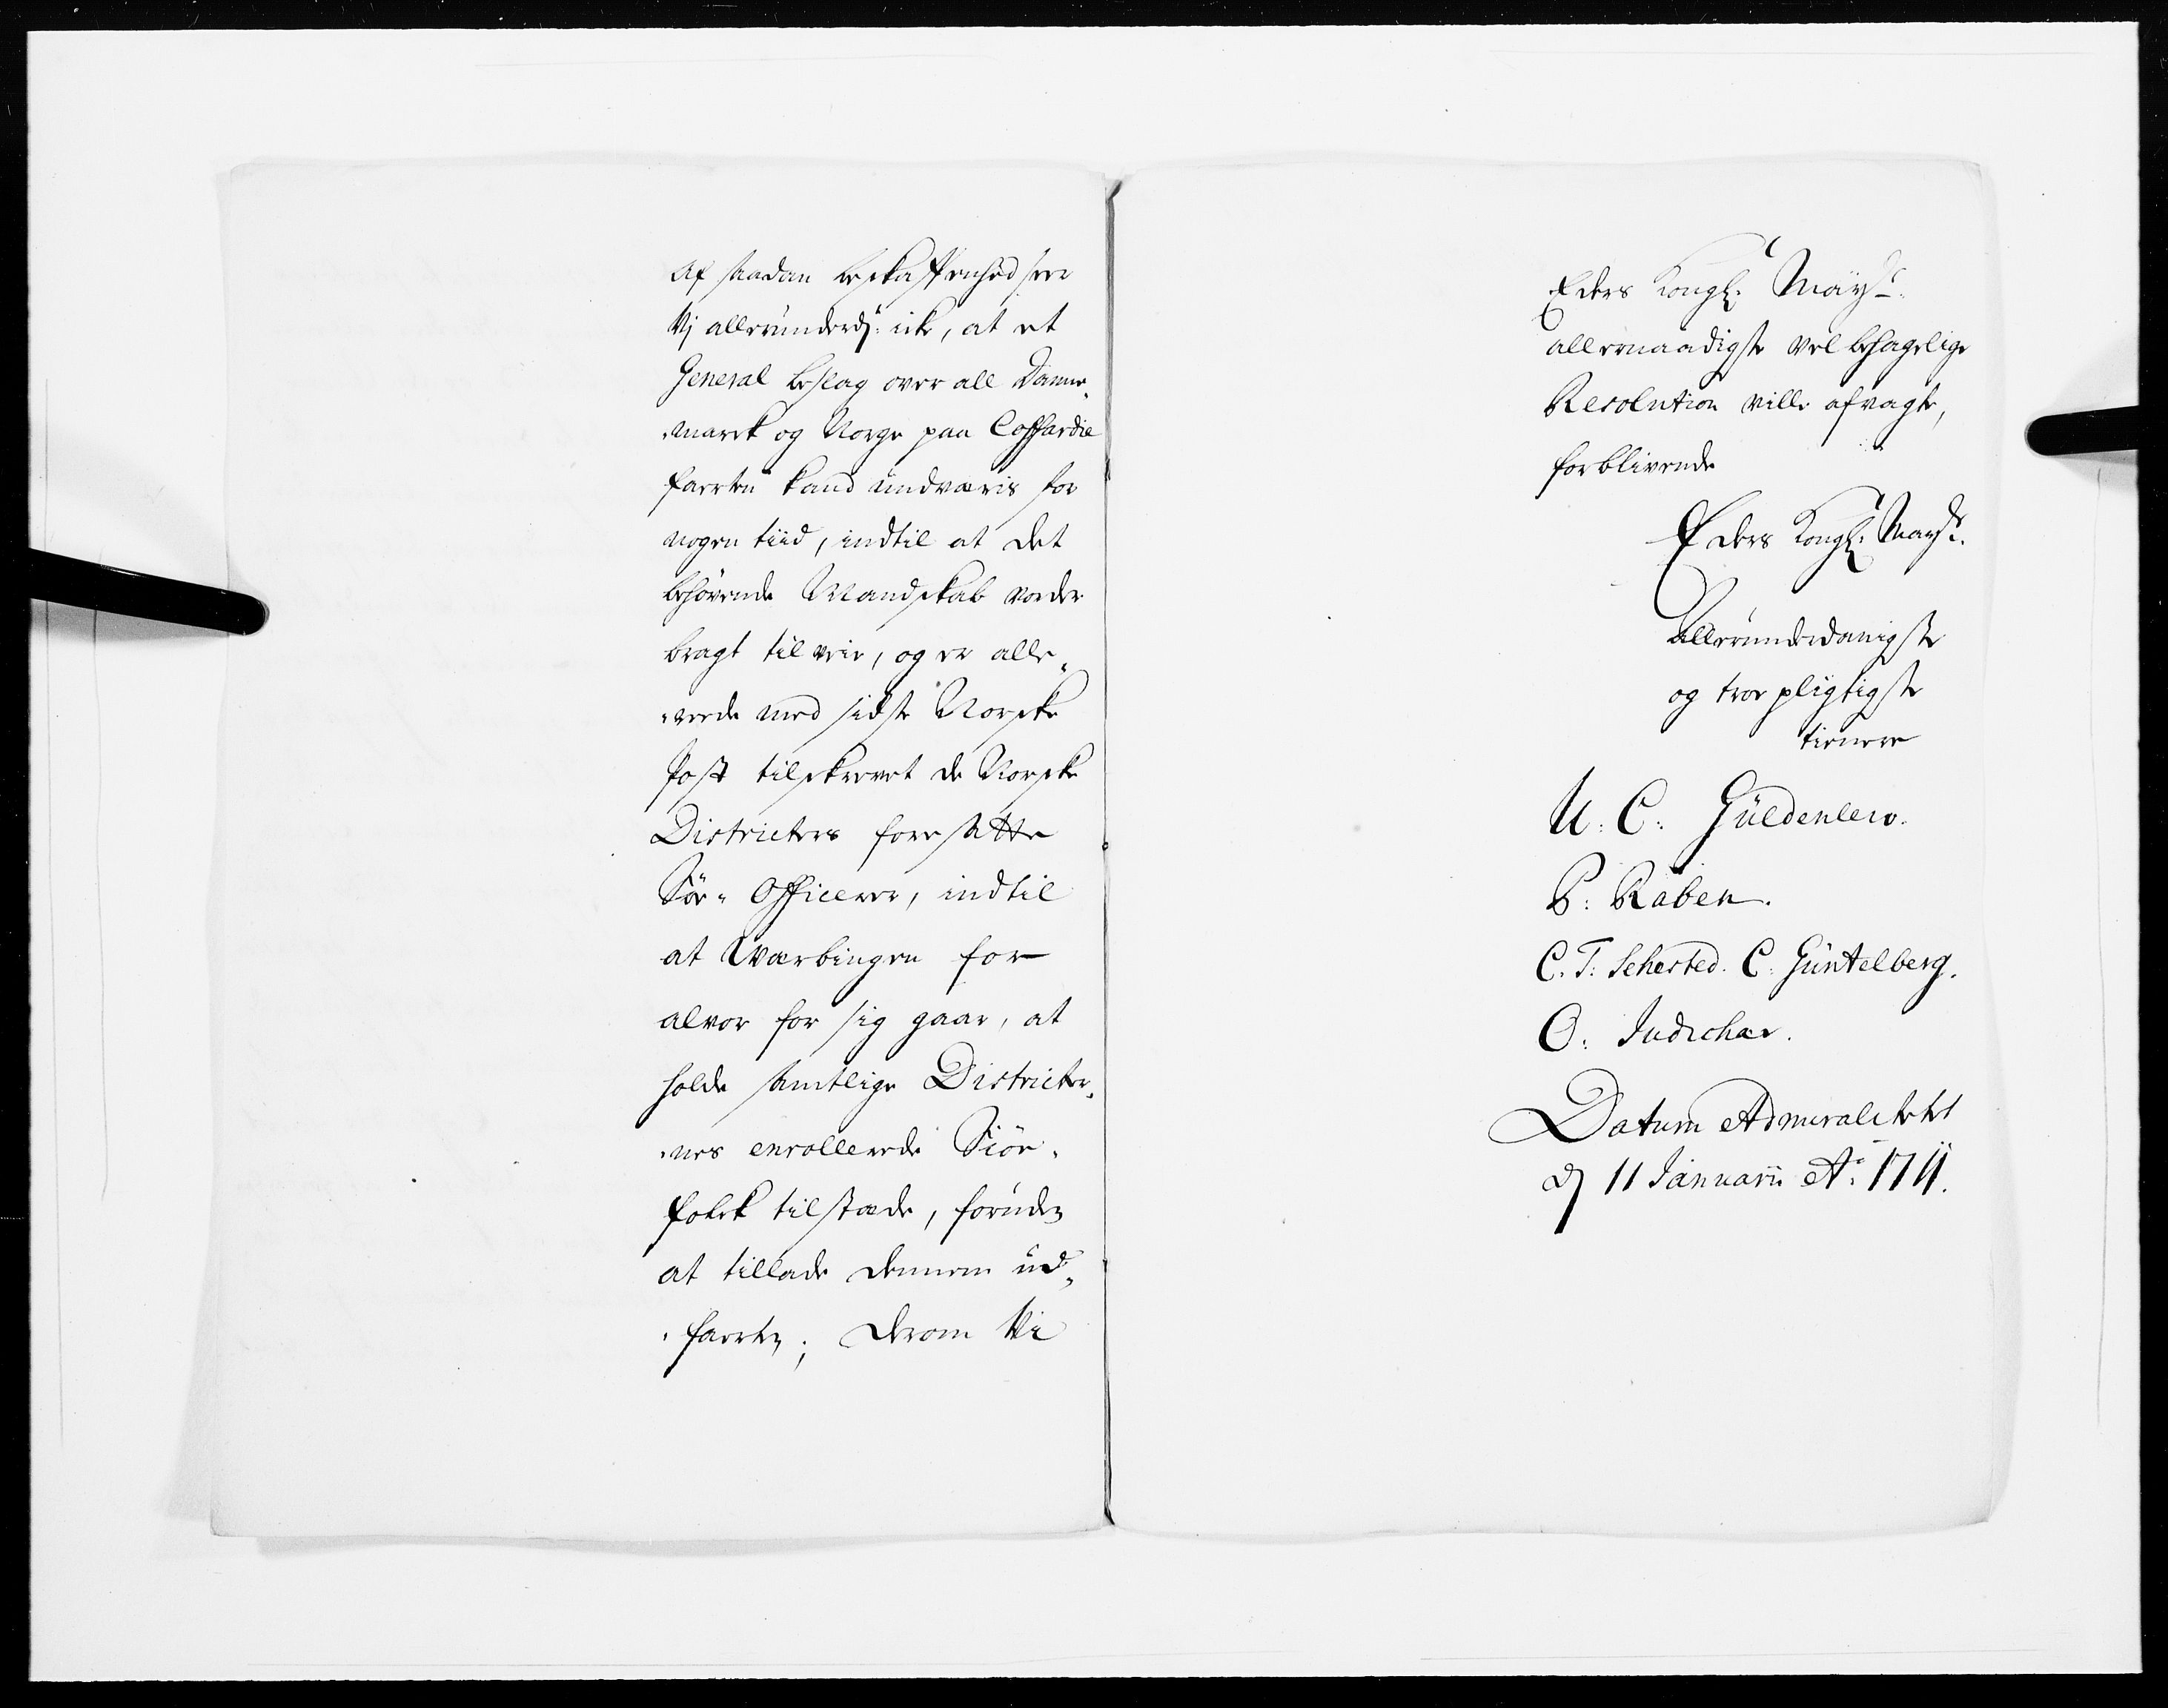 Af saadan beskaffenhed seer
Vj allerunderd: icke, at et
General beslag over all Danne„
„marck og Norge paa Coffardie
farten kand undværis for
nogen tiid, indtil at det
behövende Mandskab vorder
bragt til veie, og er alle„
„rede med sidste Norske
Post tilskrevet de Norske
Districters foresatte
Söe„ Officerer, indtil
at Wærbingen for
alvor for sig gaar, at
holde samtlige Districter„
„nes enrollerede Siöe„
folck tilstæde, foruden
at tillade dennem ud„
„farten; Derom Vi
Eders Kongl: Mayts
allernaadigste velbehagelige
Resolution ville afvagte,
forblivende
Eders Kongl: Mayts
Allerunderdanigste
og troe pligtigste
tienere
U: C: Güldenlew.
P: Raben.
C. T: Sehested. C: Güntelberg.
O: Judichær.
Datum Admiralitetet
d 11 Januarii Ao: 1711.